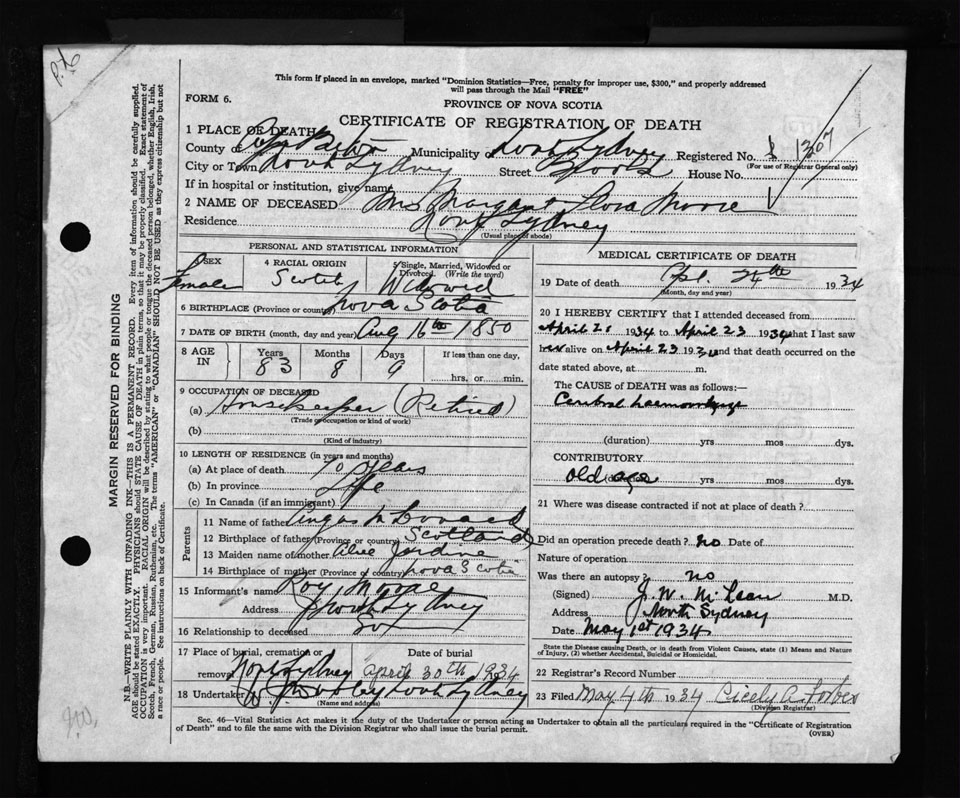 This form if placed in an envelope, marked "Dominion Statistics—Free, penalty for improper use, $300," and properly addressed
will pass through the Mail "FREE"
FORM 6.
PROVINCE OF NOVA SCOTIA
CERTIFICATE OF REGISTRATION OF DEATH
1 PLACE OF DEATH
County of Cape Breton Municipality of North Sydney Registered No. 1307
(For use of Registrar General only)
City or Town North Sydney Street House No.
If in hospital or institution, give name
2 NAME OF DECEASED Mrs Margaret Flora Moore
Residence North Sydney
(Usual place of abode)
PERSONAL AND STATISTICAL INFORMATION
3 SEX Female
4 RACIAL ORIGIN Scotch
5 Single, Married, Widowed or Divorced. (Write the word) Widowed
6 BIRTHPLACE (Province or country) Nova Scotia
7 DATE OF BIRTH (month, day and year) Aug 16th 1850
8 AGE IN Years 83 Months 8 Days 9 If less than one day. hrs. or min.
9 OCCUPATION OF DECEASED
(a) Housekeeper (Retired)
(Trade occupation or kind of work)
(b)
(Kind of industry)
10 LENGTH OF RESIDENCE (in years and months)
(a) At place of death 70 years
(b) In province Life
(c) In Canada (if an immigrant)
Parents
11 Name of father Angus
12 Birthplace of father (Province or country) Scotland
13 Maiden name of mother Jardine
14 Birthplace of mother (Province or country) Nova Scotia
15 Informant's name Roy Moore
Address North Sydney
16 Relationship to deceased Son
17 Place of burial, cremation or removal North Sydney
Date of burial April 30th 1934
18 Undertaker North Sydney
(Name and address)
MEDICAL CERTIFICATE OF DEATH
19 Date of death Apl. 24th 1934
(Month, day and year)
20 I HEREBY CERTIFY that I attended deceased from
April 21 1934 to April 23 1934 that I last saw
her alive on April 23 1934 and that death occurred on the
date stated above, at m.
The CAUSE of DEATH was as follows:—
Cerebral haemorrhage
(duration) yrs mos dys.
CONTRIBUTORY
old age
yrs mos dys.
21 Where was disease contracted if not at place of death?
Did an operation precede death? no Date of
Nature of operation
Was there an autopsy? no
(Signed) J. W. McLean M.D.
Address North Sydney
Date May 1st 1934
State the Disease causing Death, or in death from Violent Causes, state (1) Means and Nature
of Injury, (2) whether Accidental, Suicidal or Homicidal.
22 Registrar's Record Number
23 Filed May 4th 1934 Cicely A. Forbes
(Division Registrar)
Sec. 46—Vital Statistics Act makes it the duty of the Undertaker or person acting as Undertaker to obtain all the particulars required in the "Certificate of Registration
of Death" and to file the same with the Division Registrar who shall issue the burial permit.
(OVER)
MARGIN RESERVED FOR BINDING
N.B.—WRITE PLAINLY WITH UNFADING INK—THIS IS A PERMANENT RECORD. Every item of information should be carefully supplied.
AGE should be stated EXACTLY. PHYSICIANS should STATE CAUSE OF DEATH in plain terms, so that it may be properly classified. Exact statement of
OCCUPATION is very important. RACIAL ORIGIN will be described by stating to what people or tongue the deceased person belonged, whether English, Irish,
Scotch, French, German, Russian, Ruthenian, etc. The terms "AMERICAN" or "CANADIAN" SHOULD NOT BE USED as they express citizenship but not
a race or people. See instructions on back of Certificate.